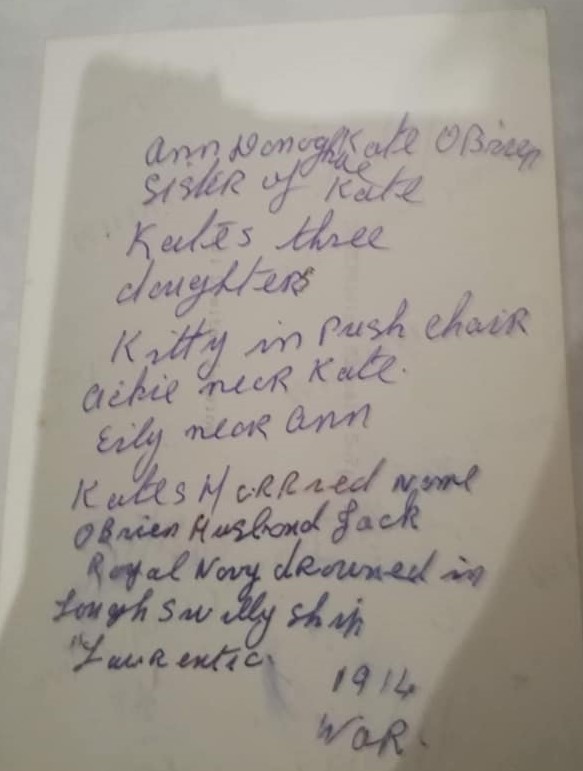 Ann Donoghue Kate OBrien
SISTER of Kate
Kates three
daughters
Kitty in Push chair
ackie neck Kate.
Eily neck Ann
Kates MaRRied name
OBrien Husband Jack
Royal Navy dRowned in
Lough Swilly ship
"LauRentic.
1914
WaR.